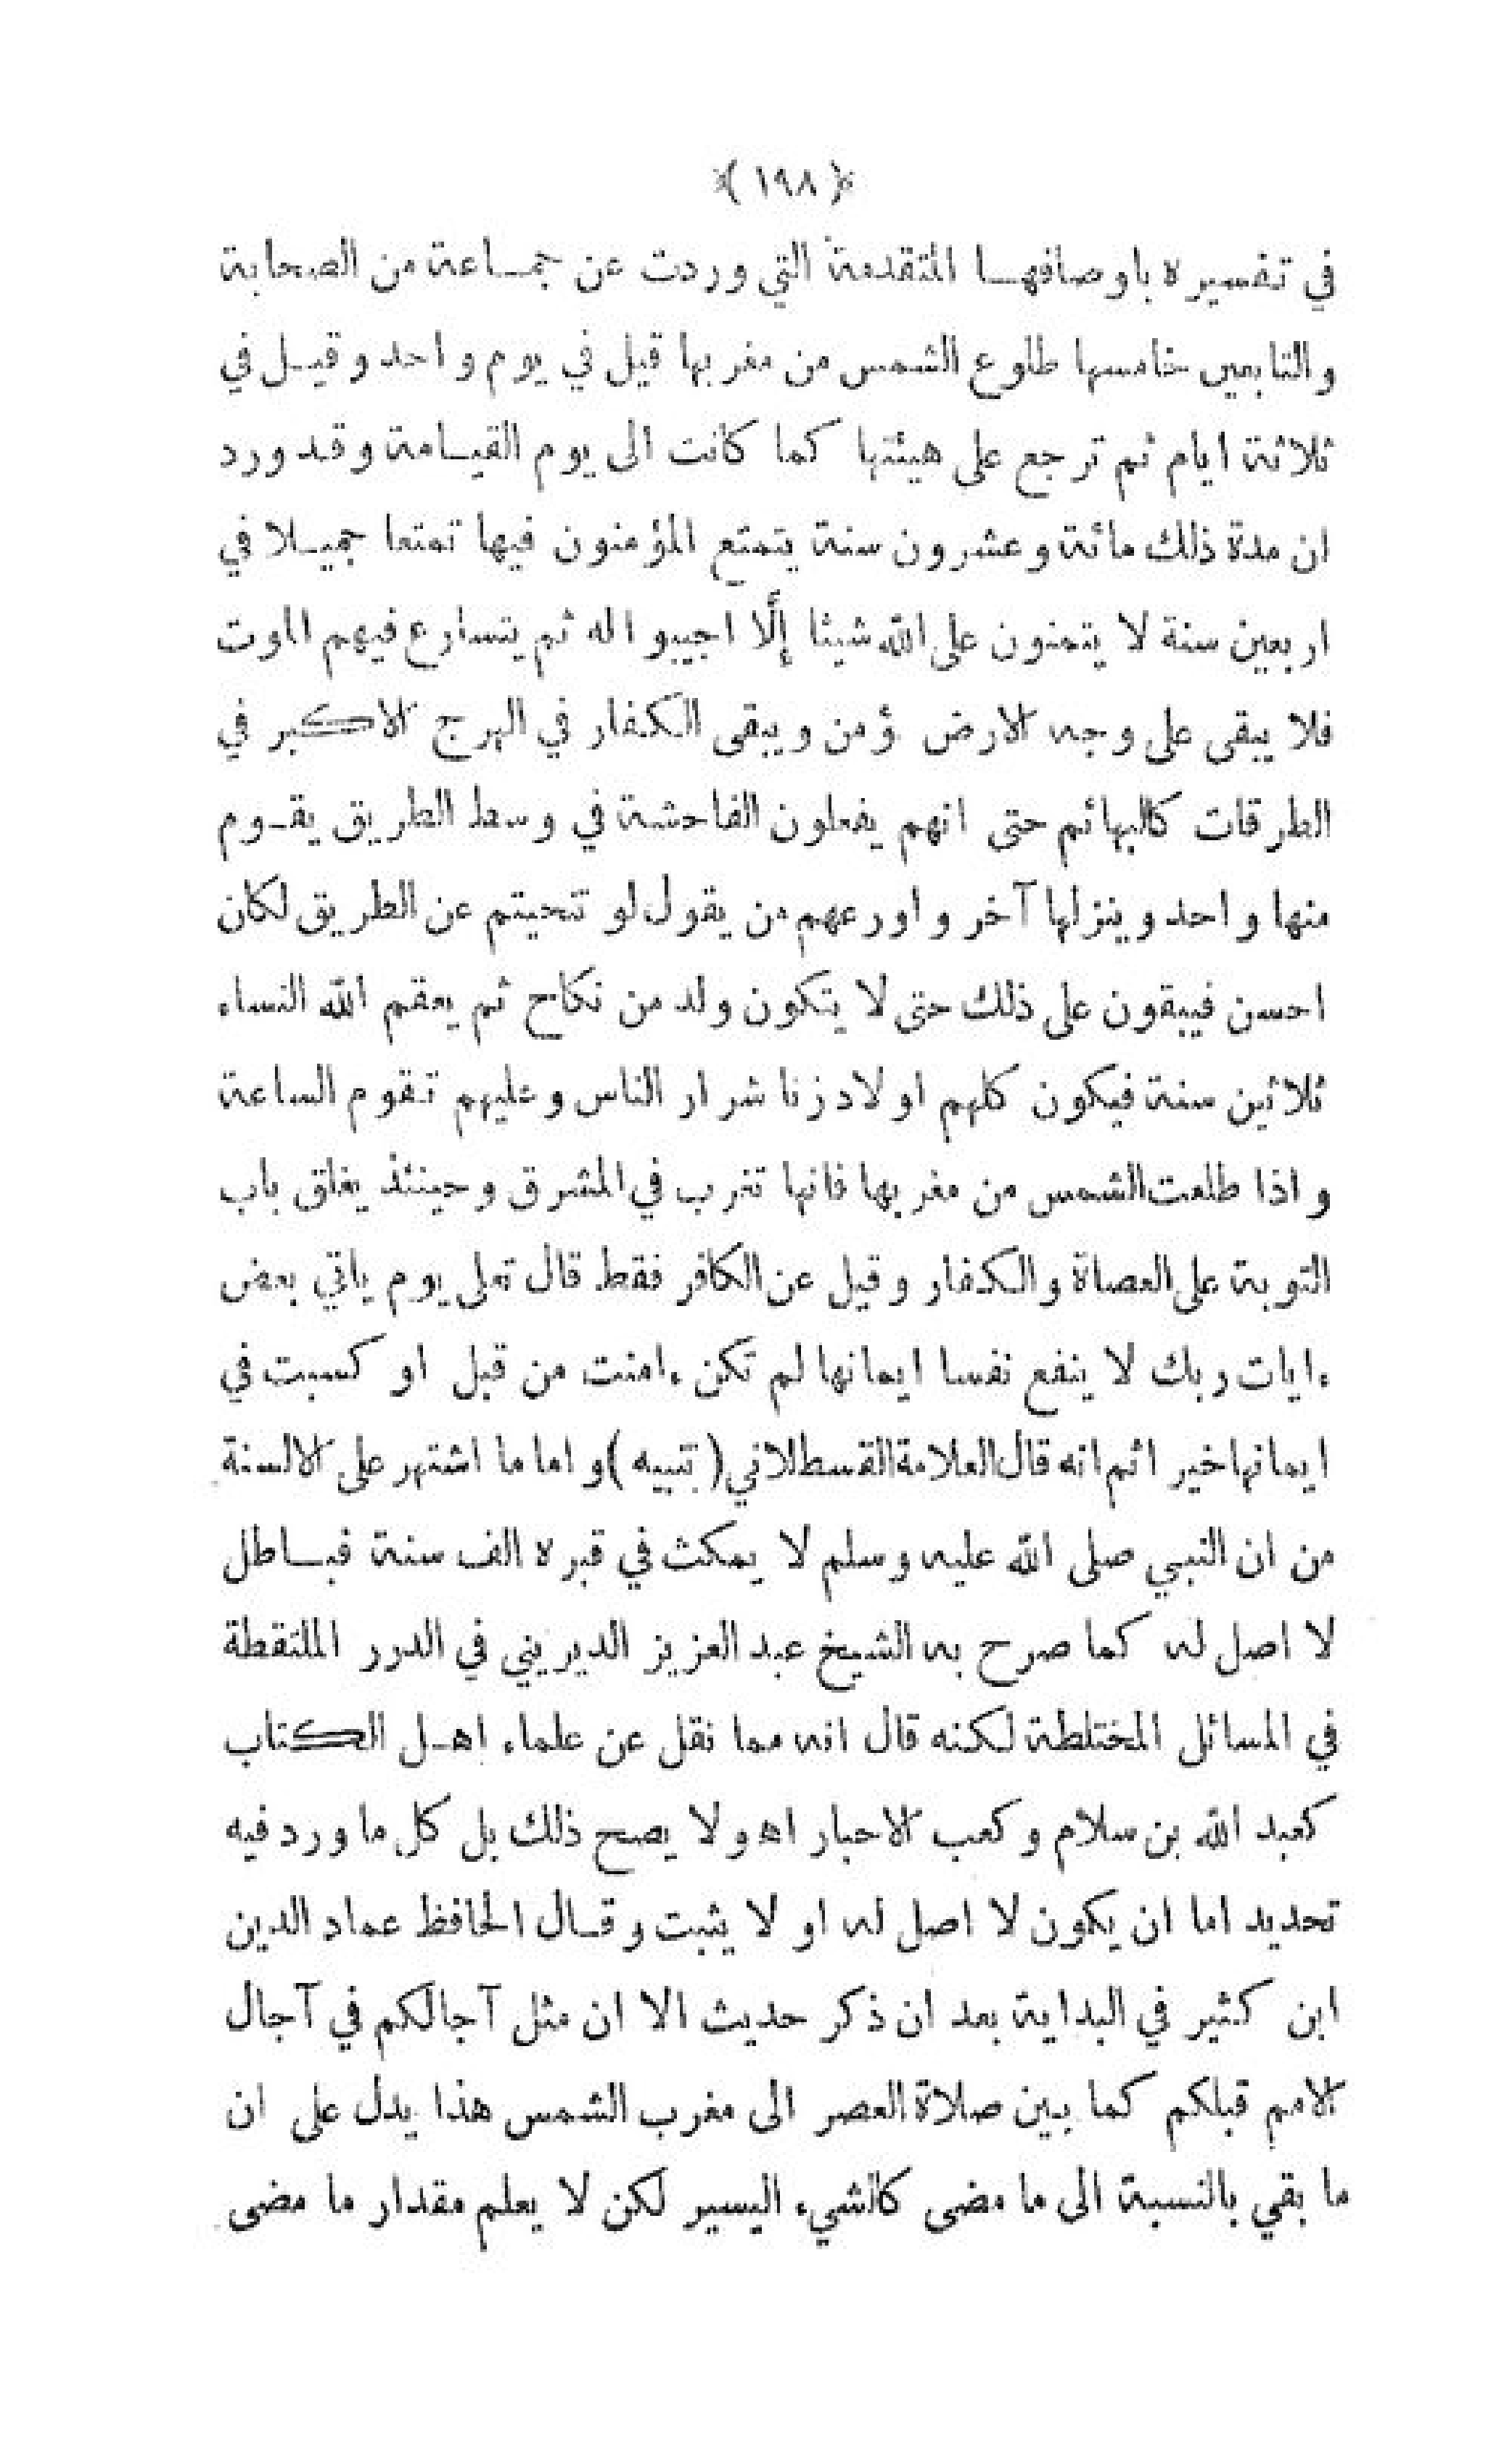 ﴿ ١٩٨ ﴾
في تفسيره باوصافهـا المتقدمة التي وردت عن جمـاعة من الصحابة
والتابعين خامسها طلوع الشمس من مغربها قيل في يوم واحد وقيـل في
ثلاثة ايام ثم ترجع على هيئتها كما كانت الى يوم القيـامة وقد ورد
ان مدة ذلك مائة وعشرون سنة يتمتع المؤمنون فيها تمتعا جميـلا في
اربعين سنة لا يتمنون على الله شيئا إلَّا اجيبوا له ثم يتسارع فيهم الموت
فلا يبقى على وجه الارض ؤمن ويبقى الكفار في الهرج الاكبر في
الطرقات كالبهائم حتى انهم يفعلون الفاحشة في وسط الطريق يقـوم
منها واحد وينزلها آخر واورعهم من يقول لو تنحيتم عن الطريق لكان
احسن فيبقون على ذلك حتى لا يتكون ولد من نكاح ثم يعقم الله النساء
ثلاثين سنة فيكون كلهم اولاد زنا شرار الناس وعليهم تقوم الساعة
واذا طلعت الشمس من مغربها فانها تغرب في المشرق وحينئذ يغلق باب
التوبة على العصاة والكفار وقيل عن الكافر فقط قال تعلى يوم ياتي بعض
ءايات ربك لا ينفع نفسا ايمانها لم تكن ءامنت من قبل او كسبت في
ايمانها خيرا ثم انه قال العلامة القسطلاني ( تنبيه ) واما ما اشتهر على الالسنة
من ان النبي صلى الله عليه وسلم لا يمكث في قبره الف سنة فبـاطل
لا اصل له كما صرح به الشيخ عبد العزيز الديريني في الدرر الملتقطة
في المسائل المختلطة لكنه قال انه مما نقل عن علماء اهـل الكتاب
كعبد الله بن سلام وكعب الاحبار اه ولا يصح ذلك بل كل ما ورد فيه
تحديد اما ان يكون لا اصل له او لا يثبت وقـال الحافظ عماد الدين
ابن كثير في البداية بعد ان ذكر حديث الا ان مثل آجالكم في آجال
الامم قبلكم كما بين صلاة العصر الى مغرب الشمس هذا يدل على ان
ما بقي بالنسبة الى ما مضى كالشيء اليسير لكن لا يعلم مقدار ما مضى